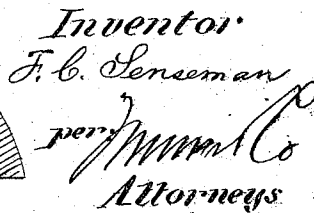 Inventor
F. C. Senseman
per Munn & Co
Attorneys